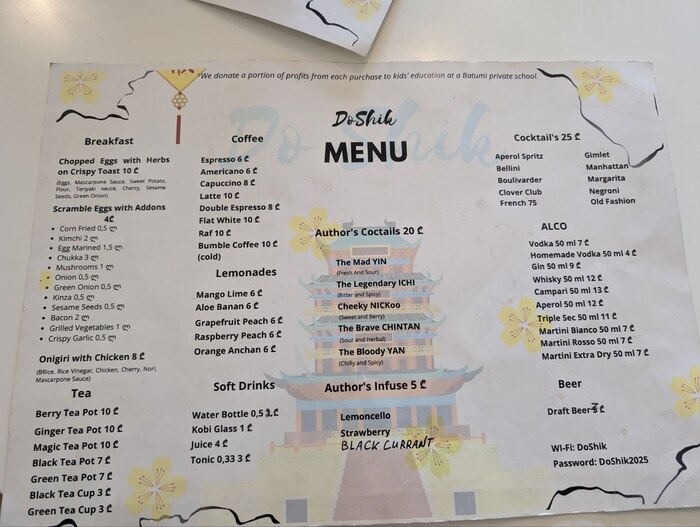 *We donate a portion of profits from each purchase to kids' education at a Batumi private school.
DoShik
MENU
Breakfast
Chopped Eggs with Herbs
on Crispy Toast 10 ₾
(Eggs, Mascarpone Sauce, Sweet Potato,
Flour, Teriyaki sauce, Cherry, Sesame
Seeds, Green Onion)
Scramble Eggs with Addons
4₾
• Corn Fried 0,5 ლ
• Kimchi 2 ლ
• Egg Marined 1,5 ლ
• Chukka 3 ლ
• Mushrooms 1 ლ
• Onion 0,5 ლ
• Green Onion 0,5 ლ
• Kinza 0,5 ლ
• Sesame Seeds 0,5 ლ
• Bacon 2 ლ
• Grilled Vegetables 1 ლ
• Crispy Garlic 0,5 ლ
Onigiri with Chicken 8 ₾
(BRice, Rice Vinegar, Chicken, Cherry, Nori,
Mascarpone Sauce)
Tea
Berry Tea Pot 10 ₾
Ginger Tea Pot 10 ₾
Magic Tea Pot 10 ₾
Black Tea Pot 7 ₾
Green Tea Pot 7 ₾
Black Tea Cup 3 ₾
Green Tea Cup 3 ₾
Coffee
Espresso 6 ₾
Americano 6 ₾
Capuccino 8 ₾
Latte 10 ₾
Double Espresso 8 ₾
Flat White 10 ₾
Raf 10 ₾
Bumble Coffee 10 ₾
(cold)
Lemonades
Mango Lime 6 ₾
Aloe Banan 6 ₾
Grapefruit Peach 6 ₾
Raspberry Peach 6 ₾
Orange Anchan 6 ₾
Soft Drinks
Water Bottle 0,5 2₾
Kobi Glass 1 ₾
Juice 4 ₾
Tonic 0,33 3 ₾
Author's Coctails 20 ₾
The Mad YIN
(Fresh And Sour)
The Legendary ICHI
(Bitter and Spicy)
Cheeky NICKoo
(Sweet and Berry)
The Brave CHINTAN
(Sour and Herbal)
The Bloody YAN
(Chilly and Spicy)
Author's Infuse 5 ₾
Lemoncello
Strawberry
BLACK CURRANT
Cocktail's 25 ₾
Aperol Spritz
Bellini
Boulivarder
Clover Club
French 75
Gimlet
Manhattan
Margarita
Negroni
Old Fashion
ALCO
Vodka 50 ml 7 ₾
Homemade Vodka 50 ml 4 ₾
Gin 50 ml 9 ₾
Whisky 50 ml 12 ₾
Campari 50 ml 13 ₾
Aperol 50 ml 12 ₾
Triple Sec 50 ml 11 ₾
Martini Bianco 50 ml 7 ₾
Martini Rosso 50 ml 7 ₾
Martini Extra Dry 50 ml 7 ₾
Beer
Draft Beer 3 ₾
Wi-Fi: DoShik
Password: DoShik2025